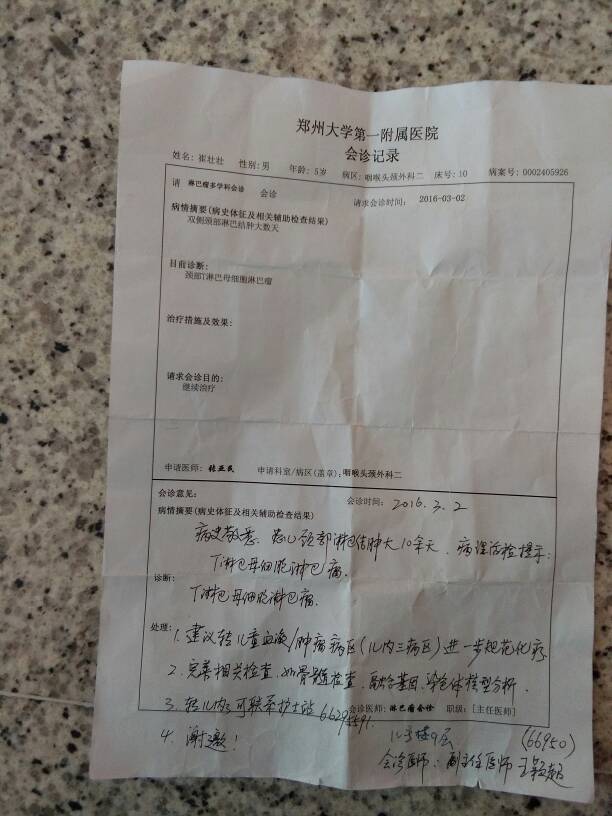 郑州大学第一附属医院
会诊记录
姓名: 崔壮壮 性别: 男 年龄: 5岁 病区: 咽喉头颈外科二 床号: 10 病案号: 0002405926
请 淋巴瘤多学科会诊 会诊 请求会诊时间: 2016-03-02
病情摘要(病史体征及相关辅助检查结果)
双侧颈部淋巴结肿大数天
目前诊断:
颈部T淋巴母细胞淋巴瘤
治疗措施及效果:
请求会诊目的:
继续治疗
申请医师: 张亚民 申请科室/病区(盖章): 咽喉头颈外科二
会诊意见: 会诊时间: 2016.3.2
病情摘要(病史体征及相关辅助检查结果)
病史敬悉. 患儿颈部淋巴结肿大10余天. 病理活检提示:
T淋巴母细胞淋巴瘤.
诊断:
T淋巴母细胞淋巴瘤.
处理: 1. 建议转儿童血液/肿瘤病区(儿内三病区)进一步规范化疗
2. 完善相关检查. 如骨髓检查. 融合基因. 染色体核型分析.
3. 转儿内三可联系护士站
会诊医师: 淋巴瘤会诊 职级: [主任医师]
4. 谢邀!
儿 9层 (66950)
会诊医师: 副主任医师 王颖超